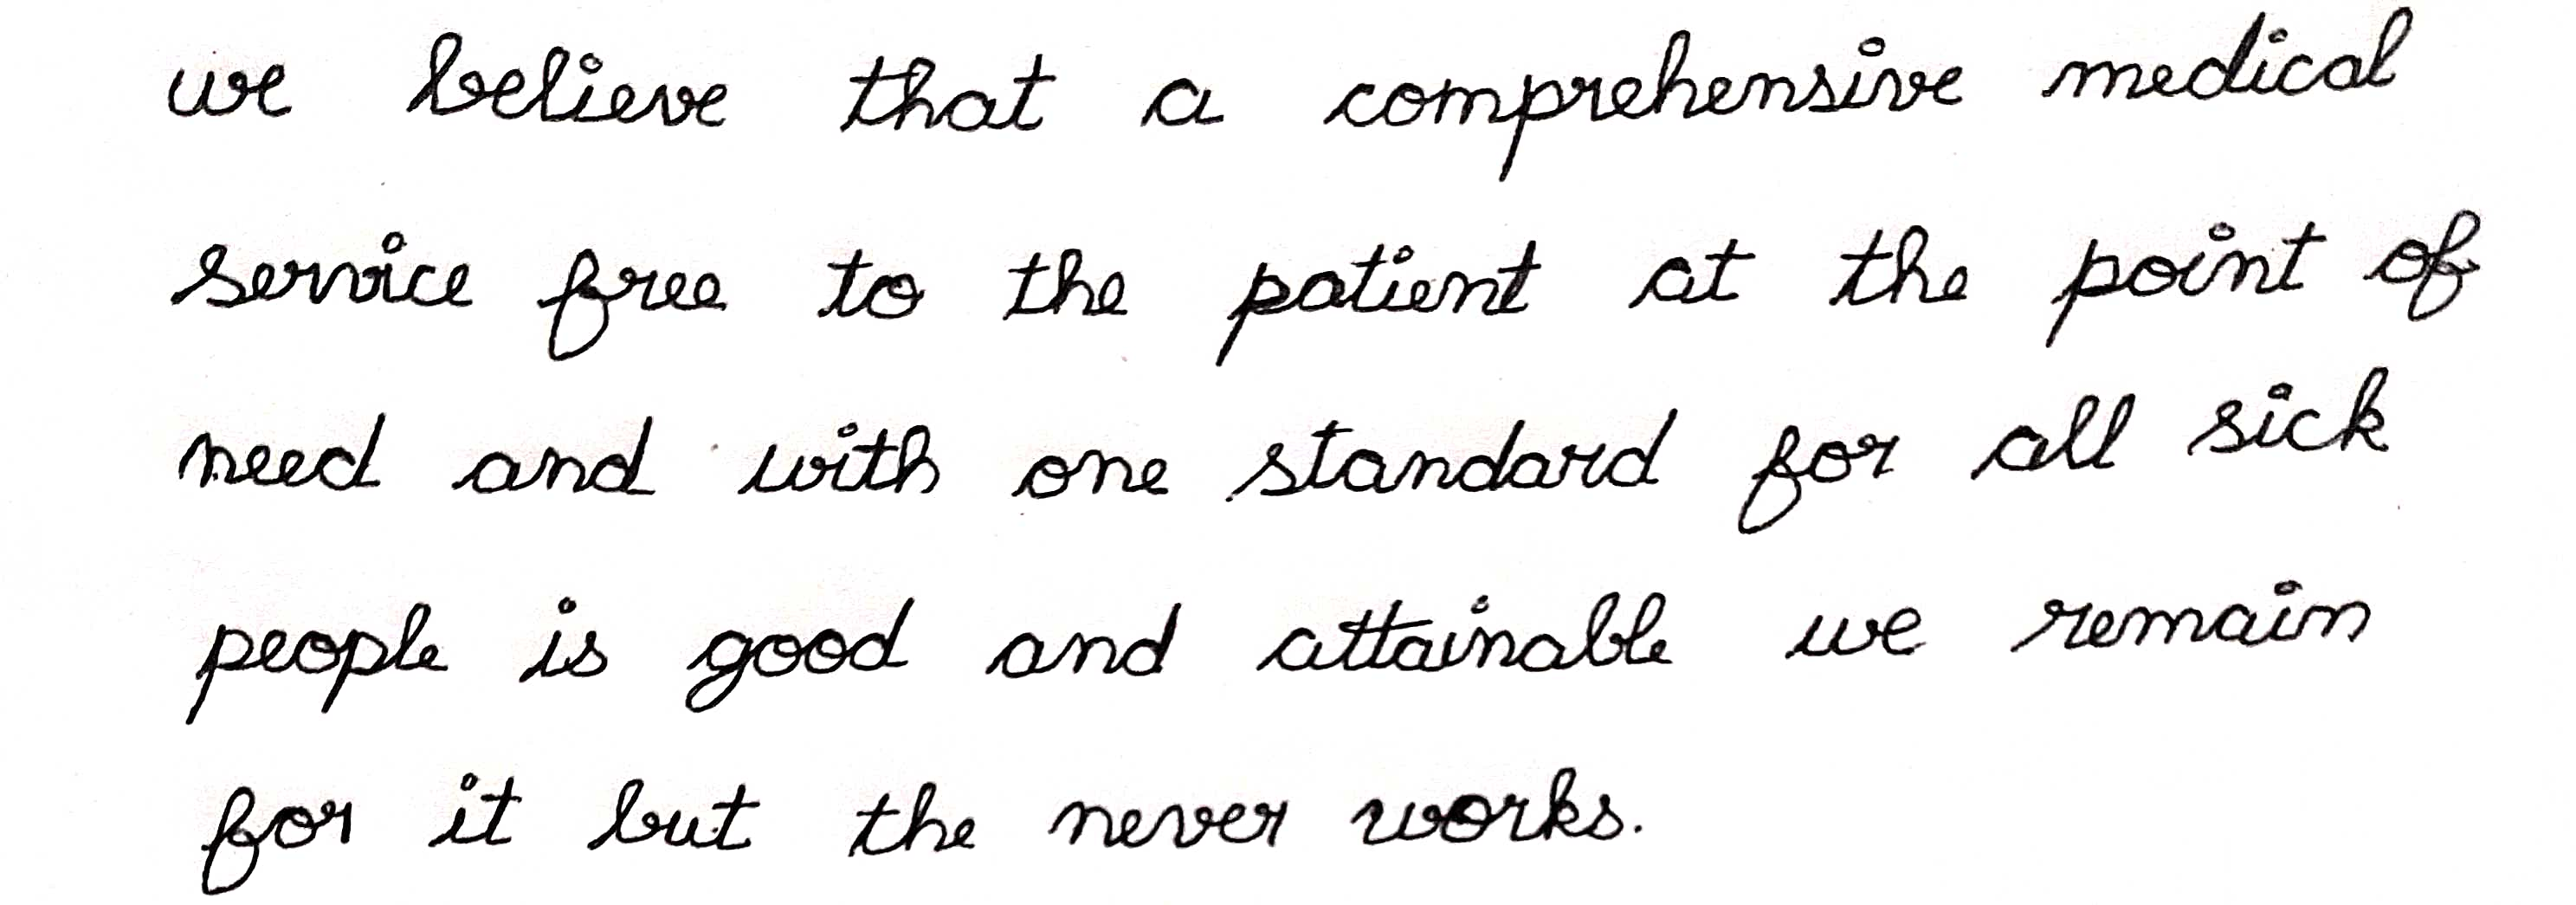 we believe that a comprehensive medical
service free to the patient at the point of
need and with one standard for all sick
people is good and attainable we remain
for it but the never works.